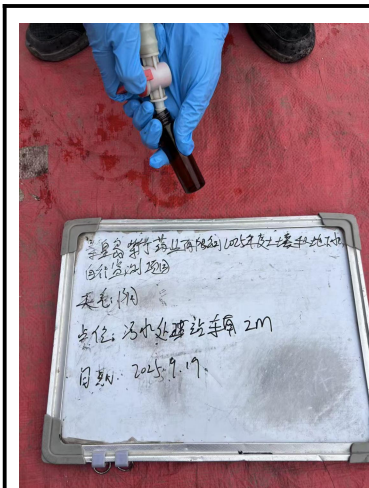 秦皇岛 药业有限公司2025年度土壤和地下水
自行监测项目
点位:污水处理站车间 2M
日期: 2025.9.19.